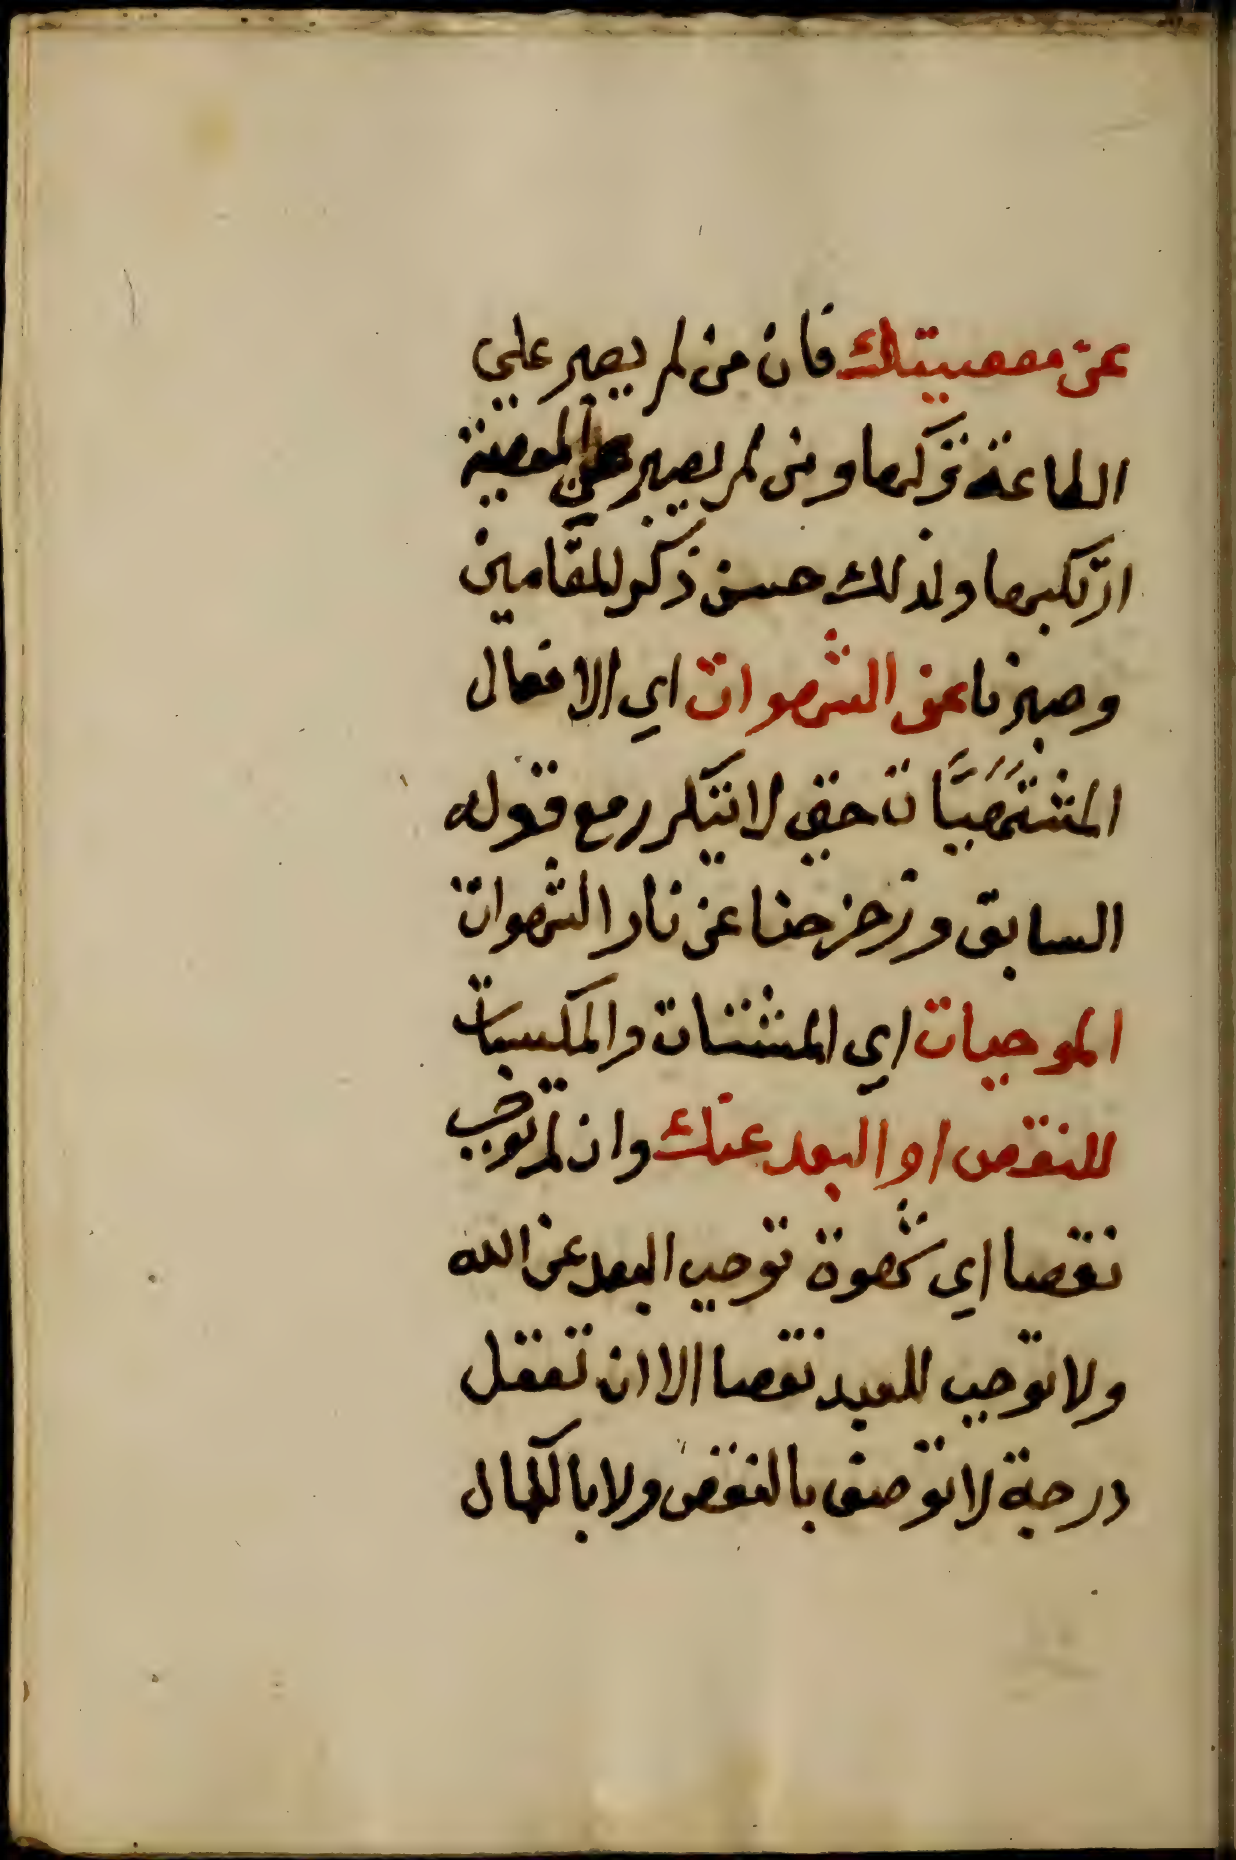 عن معصيتك فان من لم يصبر علي
الطاعة تركها ومن لم يصبر علي المعصية
ارتكبها ولذلك حسن ذكر للمقامين
وصبرنا عن الشهوات اي الافعال
المشتهيات حتي لا يتكرر مع قوله
السابق وزحزحنا عن نار الشهوات
الموجبات اي المثبتات والمكسبات
للنقص او البعد عنك وان لم توجب
نقصا اي شهوة توجب البعد عن الله
ولا توجب للعبد نقصا الا ان تعقل
درجة لا توصف بالنقص ولا بالكمال